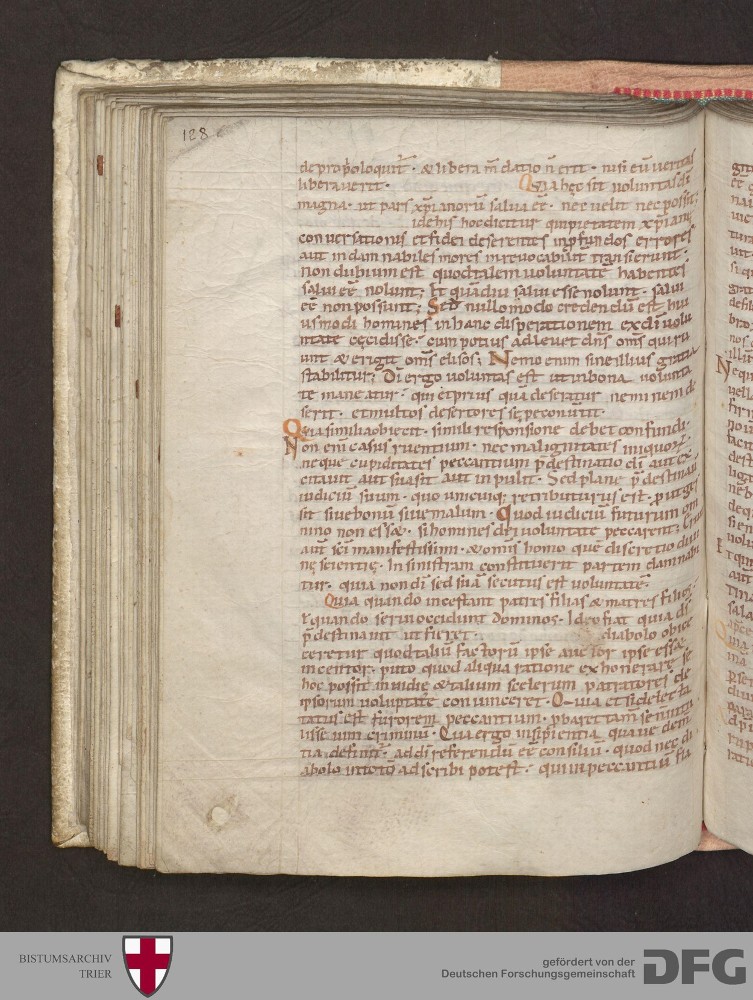 128
de prop̄lo loquit᷑ · & libera m̄ datio n̄ erit · nisi eū veritas
liberaverit · Quia hęc sit voluntas dī
magna · ut pars xp̄ianorū salva eē · nec velit nec possit;
idehis hoc dicitur qui pietatem xp̄iane
conversationis et fidei deserentes inpfundos errores
aut in damnabiles mores inrevocabiliter transierunt ·
non dubium est quod talem voluntatē habentes
salvi eē nolunt; Et quādiu salvi esse nolunt · salvi
eē non possunt; Sed nullo modo credendū est hui
usmodi homines in hanc disperationem ex dī volu
ntate cęcidisse · cum potius adlevet dn̄s om̄s qui ru
unt & erigit om̄s elisos; Nemo enim sine illius gratia
stabilitur; Dī ergo voluntas est ut in bona volunta
te maneatur · qui et prius quā deseratur neminem de
serit · et multos desertores sępe convertit ·
Quia similia obiecit · simili responsione debet confundi ·
Non em̄ casus ruentium · nec malignitates iniquoꝝ ·
neque cupiditates peccantium p̄destinatio dī aut ex
citavit aut suasit aut inpulit · Sed plane p̄destinavit
iudiciū suum · quo unicuiq; retributurus est · prout ges
sit sive bonū sive malum · Quod iudiciū futurum om
nino non esset · si homines dei voluntate peccarent;
autē scī manifestissimi · & omnis homo quē discretio divi
nę scientię · In sinistram constituerit partem damnabi
tur · quia non dī sed suā secutus est voluntatē ·
Quia quando incestant patres filias & matres filios ·
ł quando servi occidunt dominos · Ideo fiat quia dr̄
p̄destinavit ut fieret · diabolo obice
ceretur quod taliū factorū ipse auctor ipse esset
incentor · puto quod aliqua ratione exhonerare se
hoc possit invidię & talium scelerum patratores de
ipsorum voluptate convinceret · Quia etsi delecta
tatus est furorem peccantium · probaret tam̄ se n̄ intu
lisse vim criminū · Qua ergo insipientia quave dem̄
tia definit᷑ · ad dī referendū eē consiliū · quod nec di
abolo in toto adscribi potest · qui in peccantiū fla
BISTUMSARCHIV
TRIER
gefördert von der
Deutschen Forschungsgemeinschaft
DFG